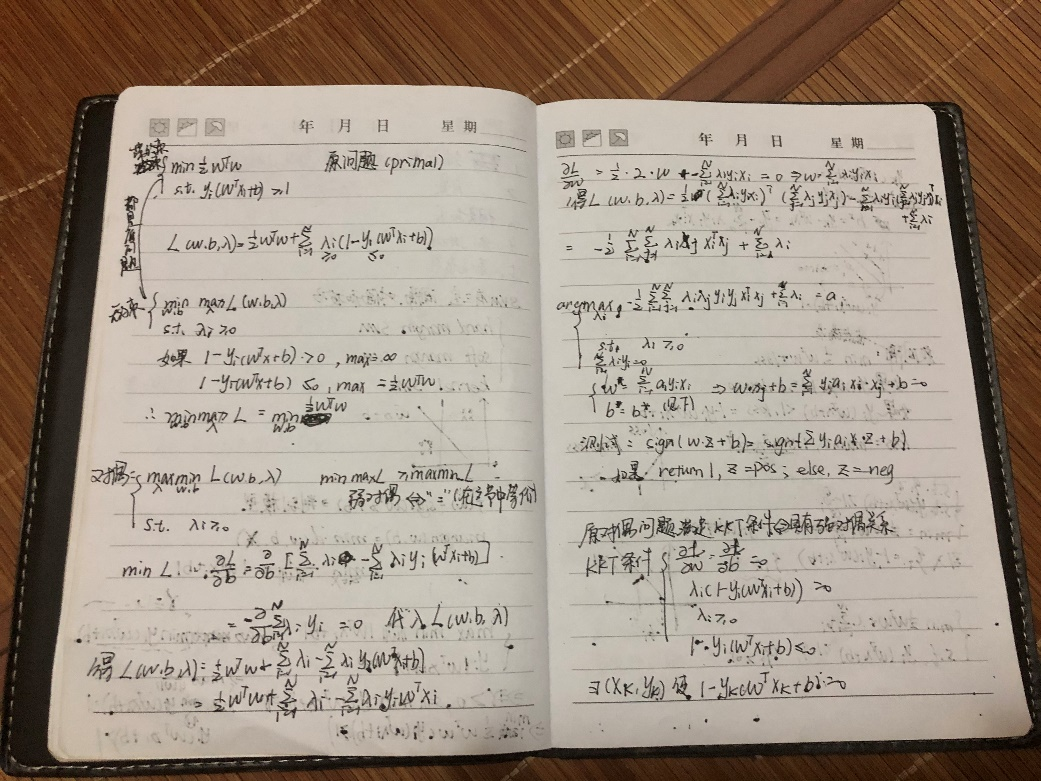 年 月 日 星期
min ½wᵀw 原问题 (primal)
s.t. yᵢ(wᵀxᵢ+b) ≥1
L(w,b,λ)=½wᵀw+∑ᵢ₌₁ᴺ λᵢ(1-yᵢ(wᵀxᵢ+b))
≥0 ≤0
无约束 { min w,b max λ L(w,b,λ)
s.t. λᵢ≥0
如果 1-yᵢ(wᵀx+b)>0, max=∞
1-yᵢ(wᵀx+b) ≤0, max = ½wᵀw
∴ min max L = min w,b ½wᵀw
对偶= { max λ min w,b L(w,b,λ) min max L ≥ max min L
强对偶 ⇔ "="
s.t. λᵢ≥0
min L: ∂L/∂b = ∂/∂b [∑ᵢ₌₁ᴺ λᵢ - ∑ᵢ₌₁ᴺ λᵢyᵢ(wᵀxᵢ+b)]
= -∂/∂b ∑ᵢ₌₁ᴺ λᵢyᵢ =0 代入 L(w,b,λ)
得 L(w,b,λ)= ½wᵀw+∑ᵢ₌₁ᴺ λᵢ-∑ᵢ₌₁ᴺ λᵢyᵢ(wᵀxᵢ+b)
= ½wᵀw+∑ᵢ₌₁ᴺ λᵢ-∑ᵢ₌₁ᴺ λᵢyᵢwᵀxᵢ
年 月 日 星期
∂L/∂w = ½·2·w-∑ᵢ₌₁ᴺ λᵢyᵢxᵢ = 0 ⇒ w=∑ᵢ₌₁ᴺ λᵢyᵢxᵢ
得L(w,b,λ)=½(∑ᵢ₌₁ᴺ λᵢyᵢxᵢ)ᵀ(∑ⱼ₌₁ᴺ λⱼyⱼxⱼ)-∑ᵢ₌₁ᴺ λᵢyᵢ(∑ⱼ₌₁ᴺ λⱼyⱼxⱼ)ᵀxᵢ
+∑ᵢ₌₁ᴺ λᵢ
= -½ ∑ᵢ₌₁ᴺ ∑ⱼ₌₁ᴺ λᵢλⱼ xᵢᵀxⱼ + ∑ᵢ₌₁ᴺ λᵢ
argmax λᵢ -½∑ᵢ₌₁ᴺ∑ⱼ₌₁ᴺ λᵢλⱼyᵢyⱼxᵢᵀxⱼ+∑ᵢ₌₁ᴺ λᵢ = aᵢ
s.t. λᵢ≥0
∑ᵢ₌₁ᴺ λᵢyᵢ=0
{ w*=∑ᵢ₌₁ᴺ aᵢyᵢxᵢ ⇒ w·xⱼ+b=∑ᵢ₌₁ᴺ yᵢaᵢxᵢ·xⱼ+b=0
b*=b* (见下)
测试: sign(w·z+b)= sign(∑yᵢaᵢxᵢ·z+b)
如果 return 1, z=pos; else, z=neg
原对偶问题满足KKT条件⇔具有强对偶关系
KKT条件 { ∂L/∂w=∂L/∂b=0
λᵢ(1-yᵢ(wᵀxᵢ+b))=0
λᵢ≥0
1-yᵢ(wᵀxᵢ+b)≤0
∃(xₖ,yₖ) 使 1-yₖ(wᵀxₖ+b)=0